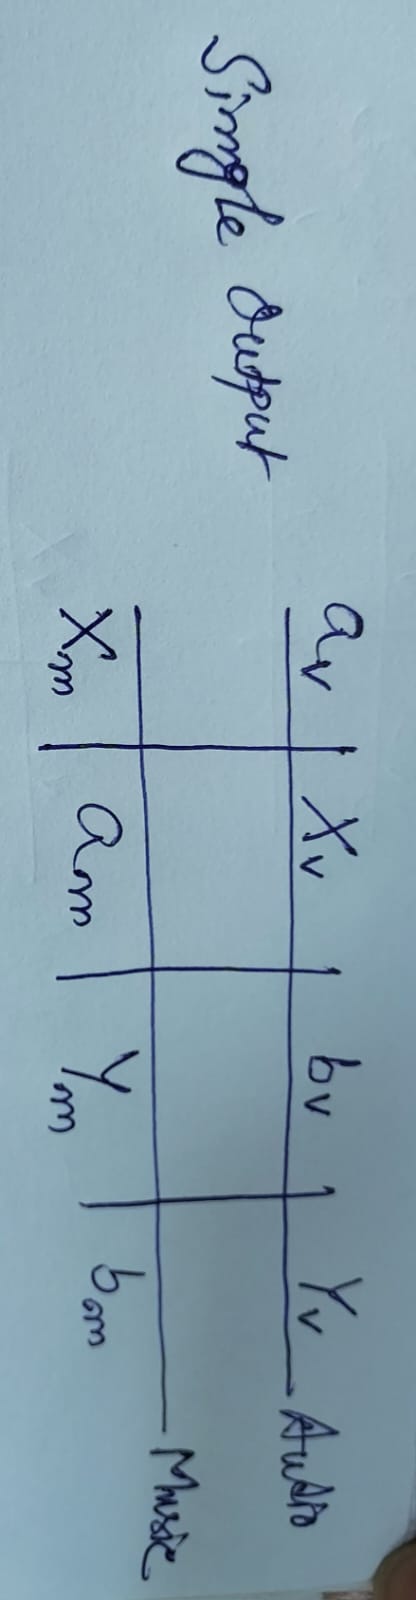 Single Output
av Xv bv Yv Audio
Xm am Ym bm Music